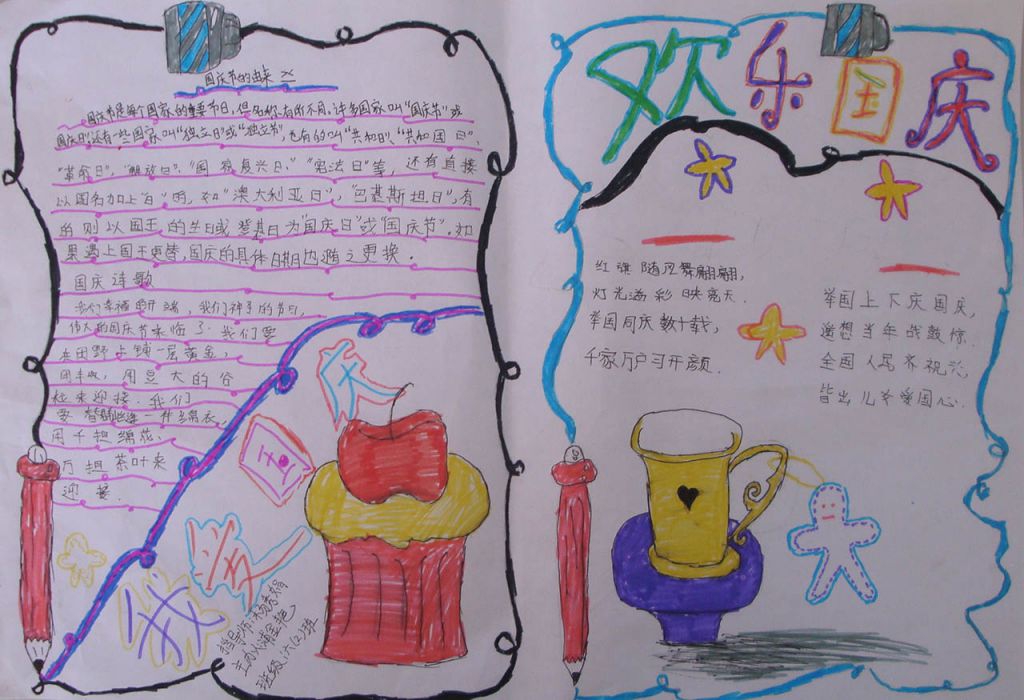 国庆节的由来
国庆节是每个国家的重要节日,但名称有所不同。许多国家叫"国庆节"或
"国庆日",还有一些国家叫"独立日"或"独立节",也有的叫"共和日"、"共和国日"、
"革命日"、"解放日"、"国家复兴日"、"宪法日"等,还有直接
以国名加上"日"的,如"澳大利亚日","巴基斯坦日",有
的则以国王的生日或登基日为"国庆日"或"国庆节"。如
果遇上国王更替,国庆的具体日期也随之更换.
国庆诗歌
我们幸福的开端,我们神圣的节日,
伟大的国庆节来临了.我们要
在田野上铺一层黄金,
用丰收,用显大的谷
粒来迎接.我们
要 一件锦衣
用千担绵花、
万担茶叶来
迎接.
庆
国
爱
我
指导师:
主办人
班级:六(2)班
欢乐国庆
红旗随风舞翩翩,
灯光溢彩映亮天.
举国同庆数十载,
千家万户习开颜.
举国上下庆国庆,
遥想当年战鼓惊.
全国人民齐祝兴,
皆出儿女爱国心.